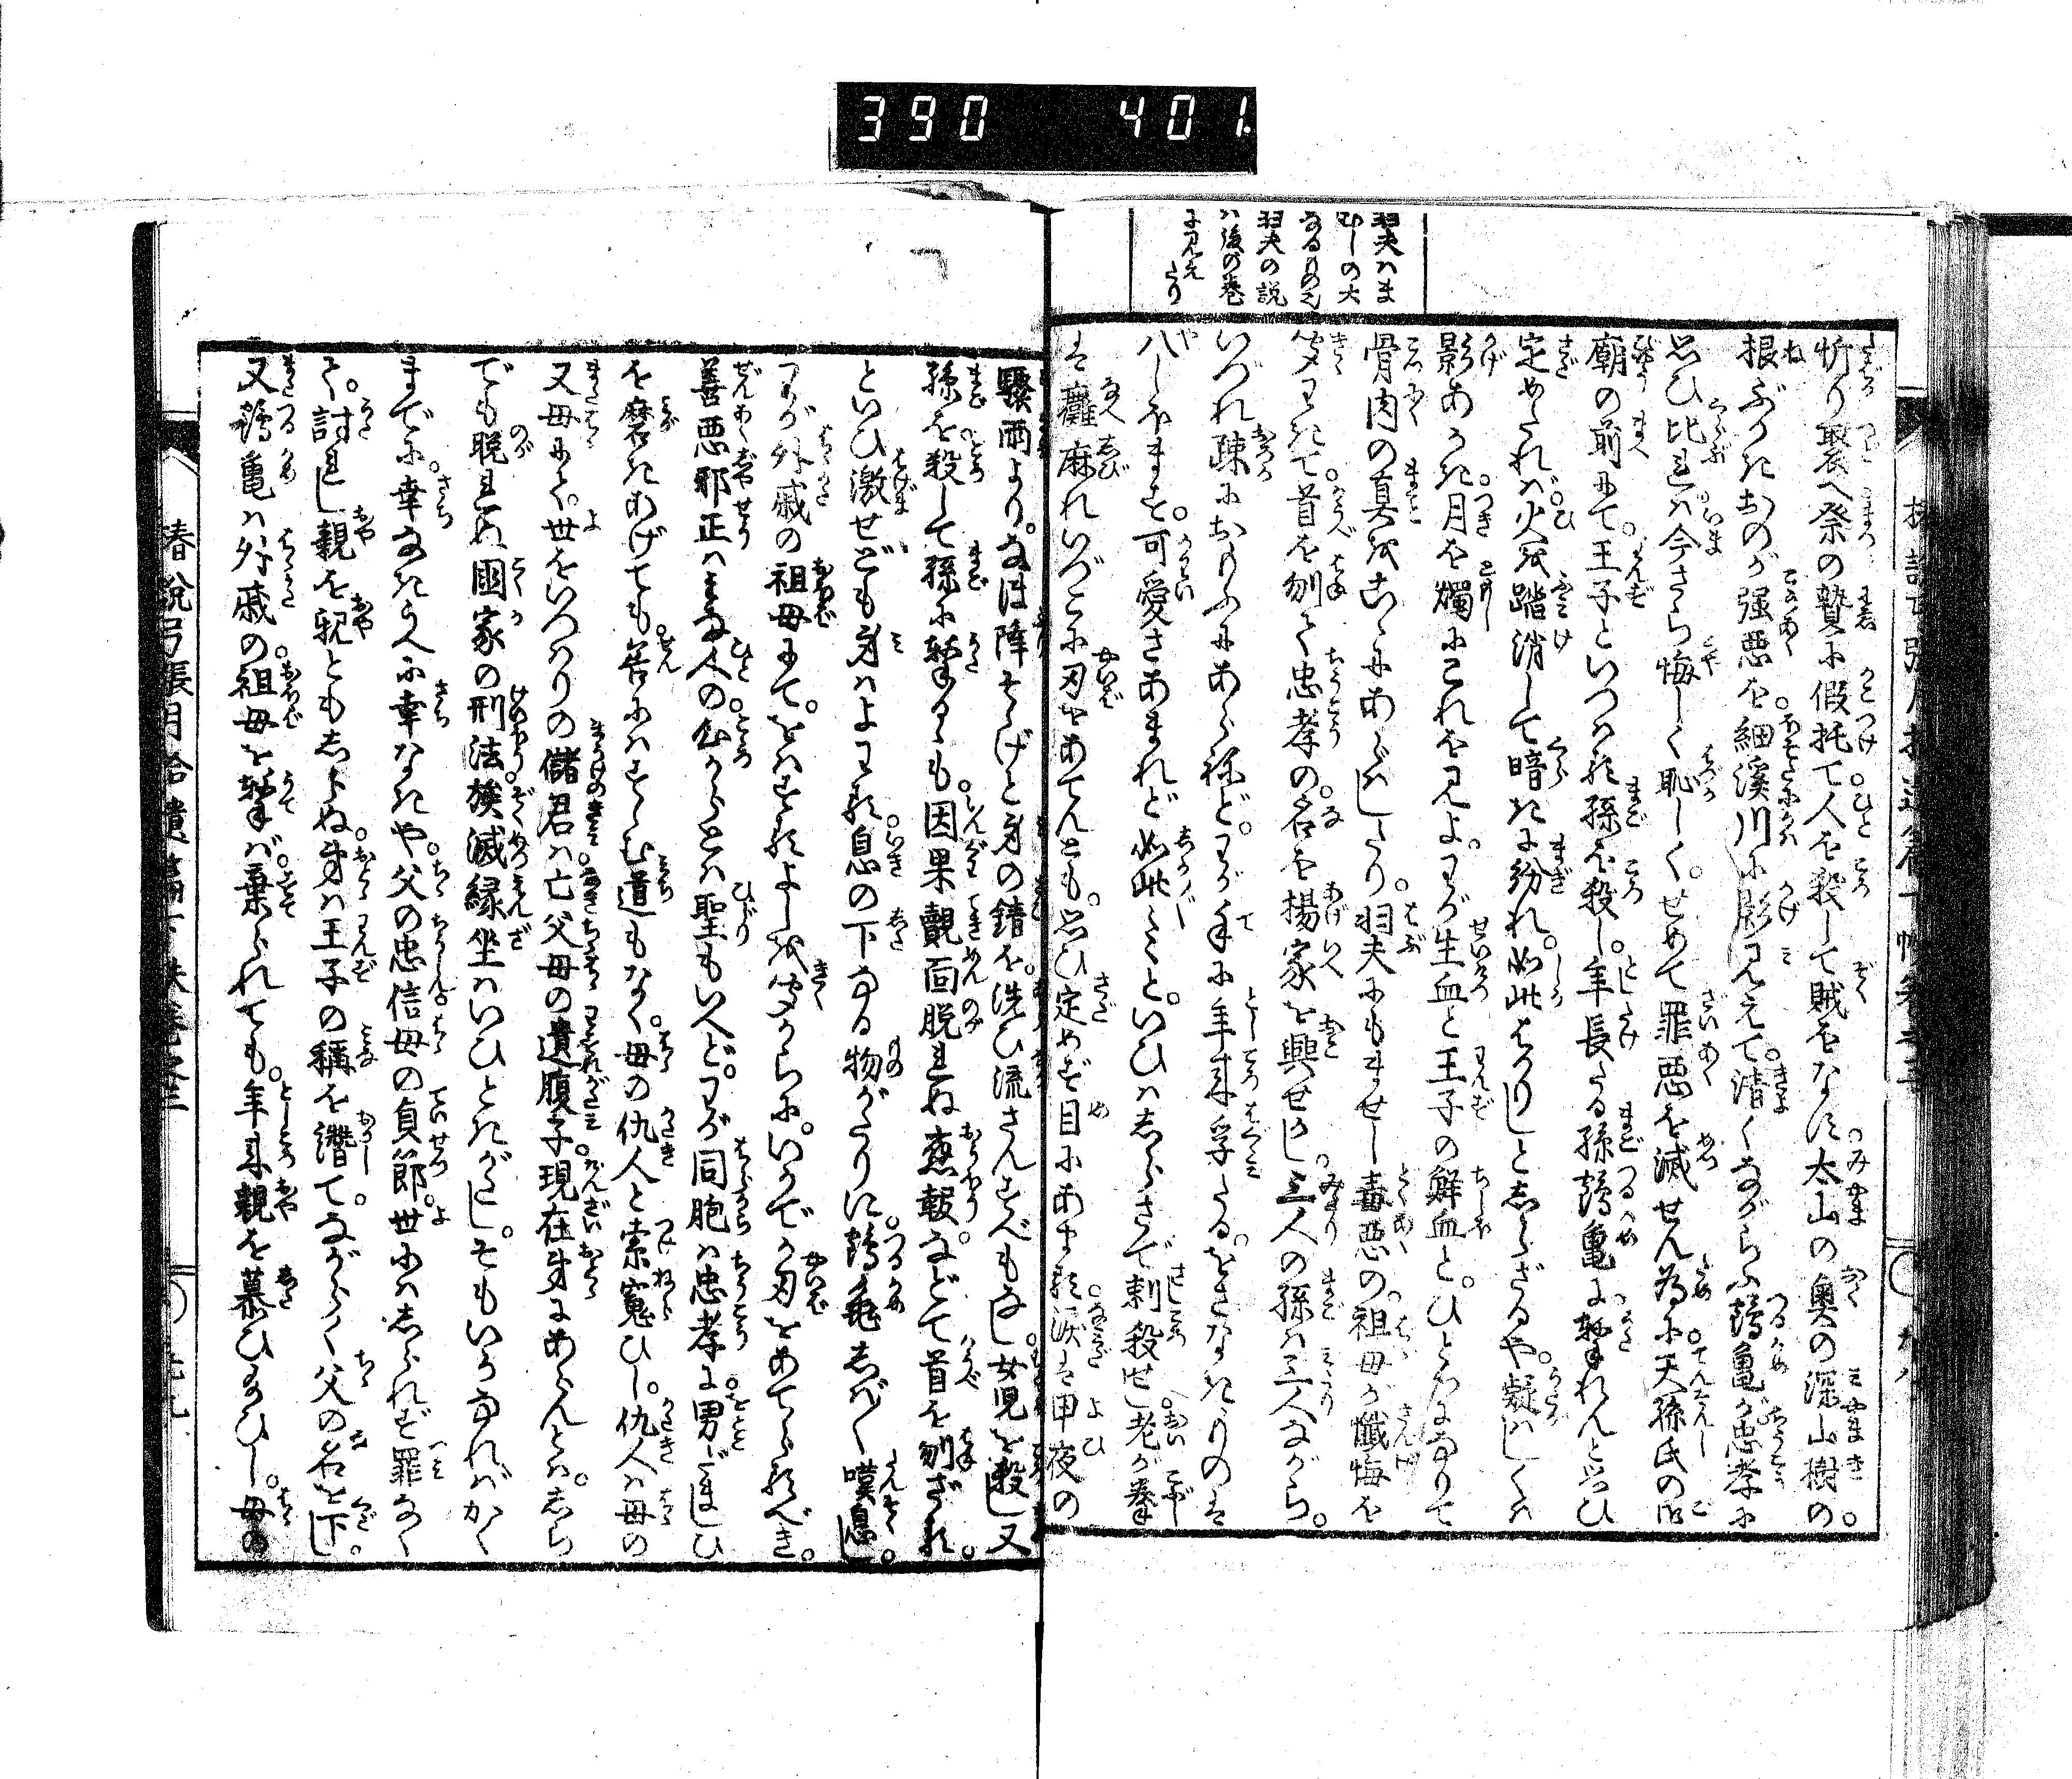 390 401
羽夫ハま
むしの大
なるもの也
羽夫の説
ハ後の巻
に見え
たり
祈り褧へ祭の贄に假托て人を殺して賊をなす太山の奥の深山樹の。
根ぶかきおのが強悪を。細渓川に影見えて。清くながらふ鶴亀が忠孝に
思ひ比れは。今さら悔しく恥しく。せめて罪悪を滅せん為に。天孫氏の御
廟の前にて。王子といつはる孫を殺し。年長たる孫鶴亀に撃れんと思ひ
定めたれハ。火を踏消して暗きに紛れ。如此はかりしとしらざるや。疑ハしくハ
影あかき。月を燭にこれを見よ。わが生血と王子の鮮血と。ひとつになりて
骨肉の真をあらはしたり。羽夫にもませし毒悪の。祖母が懺悔を
聞わきて。首を刎て忠孝の。名を揚家を興せかし。三人の孫は三人ながら。
いづれ疎におもふにあらねど。わが手に年来孚たる。をさなきものは
八しほまさ。可愛さあまれど如此〻〻と。いひハしらさで刺殺せし。老が拳
は癱麻れいづこに刃をあてんとも。思ひ定めず目にあまる。涙は甲夜の
驟雨より。なほ降そゝげど身の錆を。洗ひ流さんすべもなし。女児を殺し又
孫を殺して孫に撃るゝも。因果覿面脱れぬ應報。などて首を刎ざる。
といひ激せども身はよわる。息の下なる物がたりに。鶴亀しば〳〵嘆息し。
わが外戚の祖母にて。をはするよしを聞からに。いかでか刃をあてらるべき。
善悪邪正ハみな人の。心からとは聖もいへど。わが同胞は忠孝に。男だましひ
を磨きあげても。善にはすゝむ道もなく。母の仇人と索寃ひし。仇人は母の
又母にて。世をいつはりの儲君は。亡父母の遺腹子。現在弟にあらんとは。しら
でも脱れぬ國家の刑法。族滅縁坐ハいひとき がたし。そもいかなればかく
までに。幸なき うへに幸なきや。父の忠信母の貞節。世にはしられず罪なく
て。討れし親を親ともしらぬ。弟は王子の稱を僭て。ながらく父の名を下し。
又鶴亀ハ外戚の。祖母を撃ば。棄られても。年来親を慕ひなひし。母の
椿説弓張月拾遺篇下帙巻之三